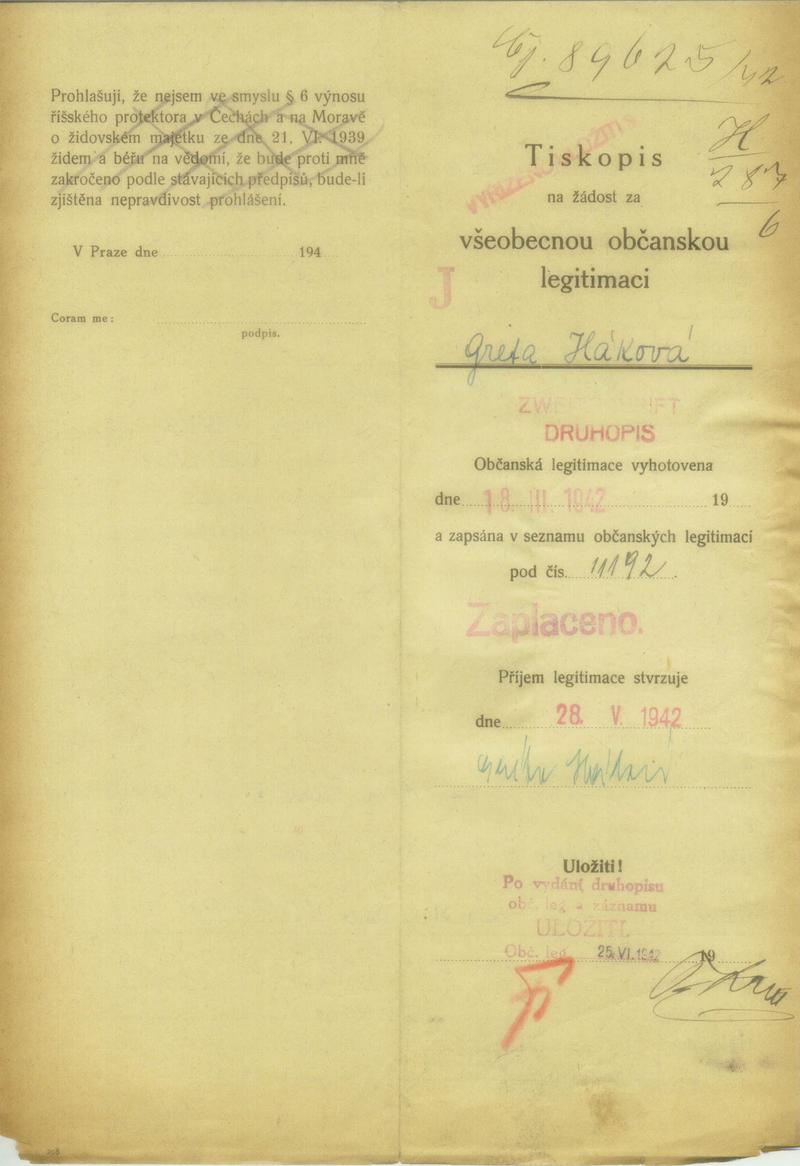 Prohlašuji, že nejsem ve smyslu § 6 výnosu
říšského protektora v Čechách a na Moravě
o židovském majetku ze dne 21. VI. 1939
židem a béřu na vědomí, že bude proti mně
zakročeno podle stávajících předpisů, bude-li
zjištěna nepravdivost prohlášení.
V Praze dne 194
Coram me:
podpis.
Čj. 89625/42
H
287
6
Tiskopis
na žádost za
všeobecnou občanskou
legitimaci
J
Greta Háková
DRUHOPIS
Občanská legitimace vyhotovena
dne 18 III 1942 19
a zapsána v seznamu občanských legitimací
pod čís. 11192
Zaplaceno.
Příjem legitimace stvrzuje
dne 28. V. 1942
Uložiti!
Po vydání druhopisu
obč. leg a záznamu
ULOŽITI.
Obč. leg. 25. VI. 1942 19